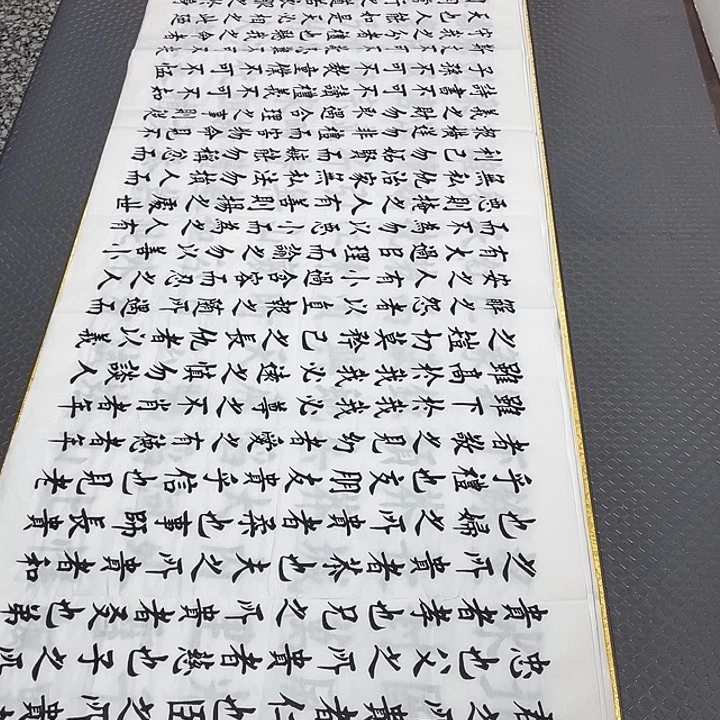 君之所貴者仁也臣之所貴
忠也父之所貴者慈也子之所
貴者孝也兄之所貴者友也弟
之所貴者恭也夫之所貴者和
也婦之所貴者柔也事師長貴
乎禮也交朋友貴乎信也見老
者敬之見幼者愛之有德者年
雖下於我我必尊之不肖者年
雖高於我我必遠之慎勿談人
之短切莫矜己之長仇者以義
解之怨者以直報之隨所遇而
安之人有小過含容而忍之人
有大過以理而諭之勿以善小
而不為勿以惡小而為之人有
惡則掩之人有善則揚之處世
無私仇治家無私法勿損人而
利己勿妒賢而嫉能勿稱忿而
報橫逆勿非禮而害物命見不
義之財勿取遇合理之事則從
詩書不可不讀禮義不可不知
子孫不可不教童僕不可不恤
斯文不可不敬患難不可不扶
守我之分者禮也聽我之命者
天也人能如是天必相之此乃
日用常行之